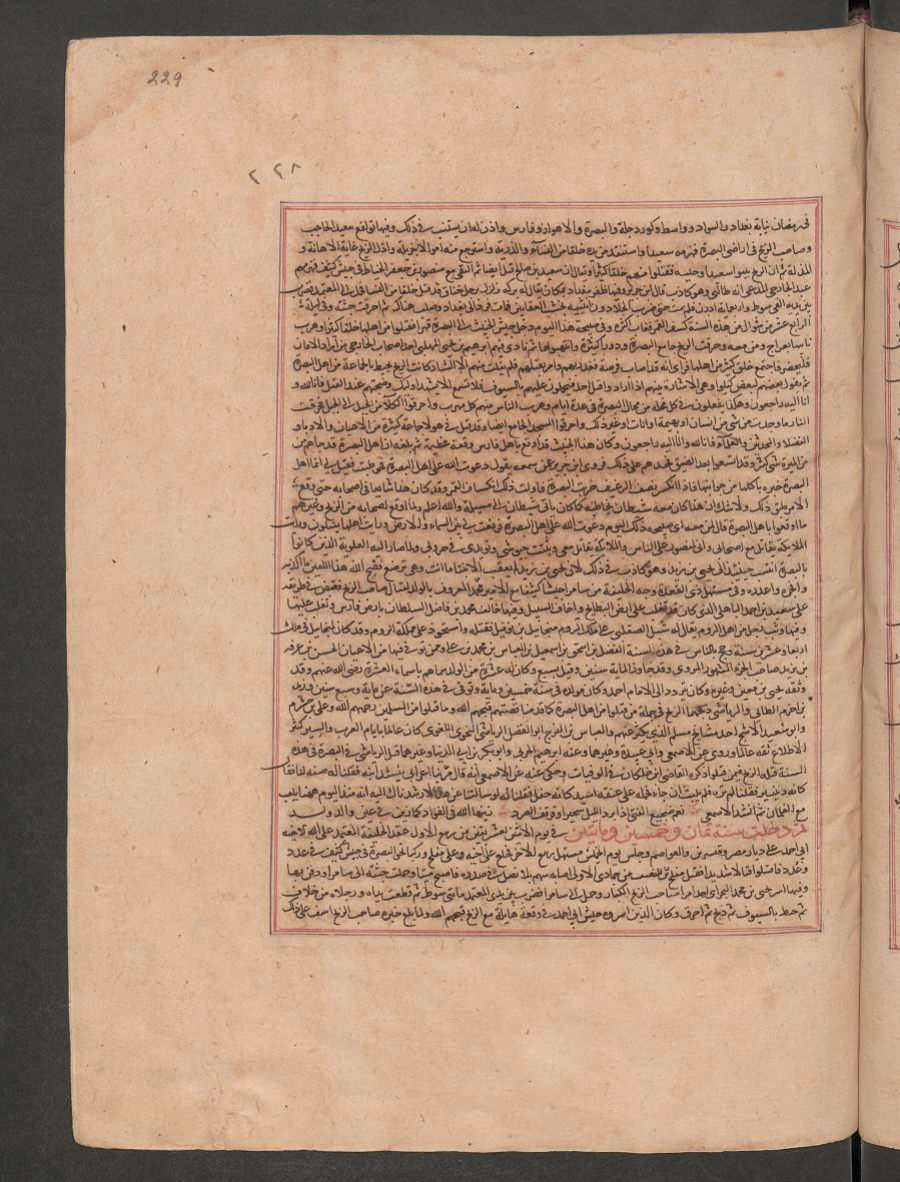 229
٢٢٨
في رمضان نيابة بغداد والسواد وواسط وكور دجلة والبصرة والاهواز وفارس واذن له ان يستنيب في ذلك وفيها تواقع سعيد الحاجب
وصاحب الزنج في اراضي البصرة فهزمه سعيد واستنقذ من يده خلقا من النساء والذرية واسترجع منه اموالا جزيلة واذل الزنج غاية الاهانة و
المذلة ثم ان الزنج بيتوا سعيدا وجيشه فقتلوا منهم خلقا كثيرا ويقال ان سعيد بن صالح قتل ايضا ثم التقى مع منصور بن جعفر الخياط في جيش كثيف فهزمهم
عبد الخارجي المدعي انه طالبي وهو كاذب قال ابن جرير وفيها ظفر ببغداد بمكان يقال له بركة زلزل برجل خناق قد قتل خلقا من النساء فحمل الى المعتمد فضرب
بين يديه الفي سوط واربعماية ارزن فلم يمت حتى ضرب الجلادون انثييه بخشب العقابين فمات فرد الى بغداد وصلب هناك ثم احرقت جثته وفي ليلة
الرابع عشر من شوال من هذه السنة كسف القمر فغاب اكثره وفي صبيحة هذا اليوم دخل جيش الخبيث الى البصرة قهرا فقتلوا من اهلها خلقا كثيرا وهرب
نائبها بغراج ومن معه وحرقت الزنج جامع البصرة ودورا كثيرة وانتهبوها ثم نادى فيهم ابراهيم بن يحيى المهلبي احد اصحاب الخارجي من اراد الامان
فليحضر فاجتمع خلق كثير من اهلها فراى انه قد اصاب فرصة فغدر بهم وامر بقتلهم فلم يفلت منهم الا الشاذ كانت الزنج تحيط بالجماعة من اهل البصرة
ثم يقول بعضهم لبعض كيلوا وهي الاشارة بينهم اذا ارادوا قتل احد فيحملون عليهم بالسيوف فلا تسمع الا تشهد اولئك وضجتهم عند القتل فانا لله و
انا اليه راجعون وهكذا يفعلون في كل محلة من محال البصرة في عدة ايام وهرب الناس منهم كل مهرب واحرقوا الكلأ من الجبل الى الجبل فحرقت
النار ما وجدت من شي من انسان او بهيمة او اثاث وغير ذلك واحرقوا المسجد الجامع ايضا وقد قتل في هولا جماعة كثيرة من الاعيان والادبا و
الفضلا والمحدثين والعلماء فانا لله وانا اليه راجعون وكان هذا الخبيث قد اوقع باهل فارس وقعة عظيمة ثم بلغه ان اهل البصرة قد جاهم
من الميرة شي كثير وقد اتسعوا بعد الضيق فحسدهم على ذلك فروى ابن جرير عمن سمعه يقول دعوت الله على اهل البصرة فخوطبت فقيل لي انما اهل
البصرة خبزة تاكلها من جوانبها فاذا انكسر نصف الرغيف خربت البصرة فاولت ذلك بانكساف القمر وقد كان هذا شايعا في اصحابه حتى وقع
الامر طبق ذلك ولا شك ان هذا كان معه شيطان يخاطبه كما كان ياتي شيطان الى مسيلمة والله اعلم ولما اوقع اصحابه من الزنج وغيرهم
ما اوقعوا باهل البصرة قال لمن معه اي صبيحة ذلك اليوم دعوت الله على اهل البصرة فرفعت لي بين السماء والارض ورايت اهلها يقتلون ورايت
الملايكة تقاتل مع اصحابي واني لمنصور على الناس والملايكة تقاتل معي ويثبت جيوشي وتؤيدني في حروبي ولما صار اليه العلوية الذين كانوا
بالبصرة انتسب حينئذ الى يحيى بن زيد وهو كاذب في ذلك لان يحيى بن زيد لم يعقب الا بنتا ماتت وهي ترضع فقبح الله هذا اللعين ما اكذبه
وافجره واغدره وفي مستهل ذي القعدة وجه الخليفة من سامرا جيشا كثيفا مع الامير محمد المعروف بالمولد لقتال صاحب الزنج فقبض في طريقه
على سعيد بن احمد الباهلي الذي كان قد تغلب على ارض البطايح واخاف السبيل وفيها خالف محمد بن واصل السلطان بارض فارس وتغلب عليها
وفيها وثب رجل من اهل الروم يقال له بسيل الصقلبي على ملك الروم ميخاييل بن توفيل فقتله واستحوذ على مملكة الروم وقد كان لميخاييل في الملك
اربعا وعشرين سنة وحج بالناس في هذه السنة الفضل بن اسحق بن اسمعيل بن العباس بن محمد بن علي وممن توفي فيها من الاعيان الحسن بن عرفة
بن يزيد صاحب الجزء المشهور المروي وقد جاوز الماية بسنين وقيل بسبع وكان له عشرة من الولد سماهم باسماء العشرة رضي الله عنهم وقد
وثقه يحيى بن معين وغيره وكان يتردد الى الامام احمد وكان مولده في سنة خمسين وماية وتوفي في هذه السنة عن ماية وسبع سنين وزيد
بن اخزم الطائي والرياشي ذبحهما الزنج في جملة من قتلوا من اهل البصرة كما قدمنا قصتهم قبحهم الله وما قتلوا من المسلمين رحمهم الله وعلي بن خشرم
وابو سعيد الاشج احد مشايخ مسلم الذي يكثر عنهم والعباس بن الفرج ابو الفضل الرياشي النحوي اللغوي كان عالما بايام العرب والسير وكثر
الاطلاع ثقة عالما روى عن الاصمعي وابي عبيدة وغيرهما وعنه ابراهيم الحربي وابو بكر بن ابي الدنيا وغيرهما قتل الرياشي في البصرة في هذه
السنة قتله الزنج فيمن قتلوا ذكره القاضي ابن خلكان في الوفيات وحكى عنه عن الاصمعي انه قال مر بنا اعرابي ينشد ابنه فقلنا له صفه لنا فقال
كانه دنينير فقلنا لم نره فلم يلبث ان جاء يحمله على عنقه اسيد كانه جعل فقلنا له لو سالتنا عن هذا لارشدناك اليه انه منذ اليوم ههنا يلعب
مع الغلمان ثم انشد الاصمعي نعم ضجيع الفتى اذا برد الليل سحيرا وقرقف الصرد زينها الله في الفؤاد كما زين في عين والد ولد
ثم دخلت سنة ثمان وخمسين ومائتين في يوم الاثنين لعشر بقين من ربيع الاول عقد الخليفة المعتمد على الله لاخيه
ابي احمد على ديار مصر وقنسرين والعواصم وجلس يوم الخميس مستهل ربيع الاخر فخلع على اخيه وعلى مفلح وركبا نحو البصرة في جيش كثيف في عدد
وعدد فاقتتلوا قتالا شديدا فقتل مفلح للنصف من جمادى الاولى اصابه سهم بلا نصل في صدره فاصبح ميتا وحملت جثته الى سامرا ودفن بها
وفيها اسر يحيى بن محمد البحراني احد امرا صاحب الزنج الكبار وحمل الى سامرا فضرب بين يدي المعتمد مايتي سوط ثم قطعت يداه ورجلاه من خلاف
ثم خبط بالسيوف ثم ذبح ثم احرق وكان الذين اسروه جيش ابي احمد في وقعة هايلة مع الزنج قبحهم الله ولما بلغ خبره صاحب الزنج اسف على ذلك